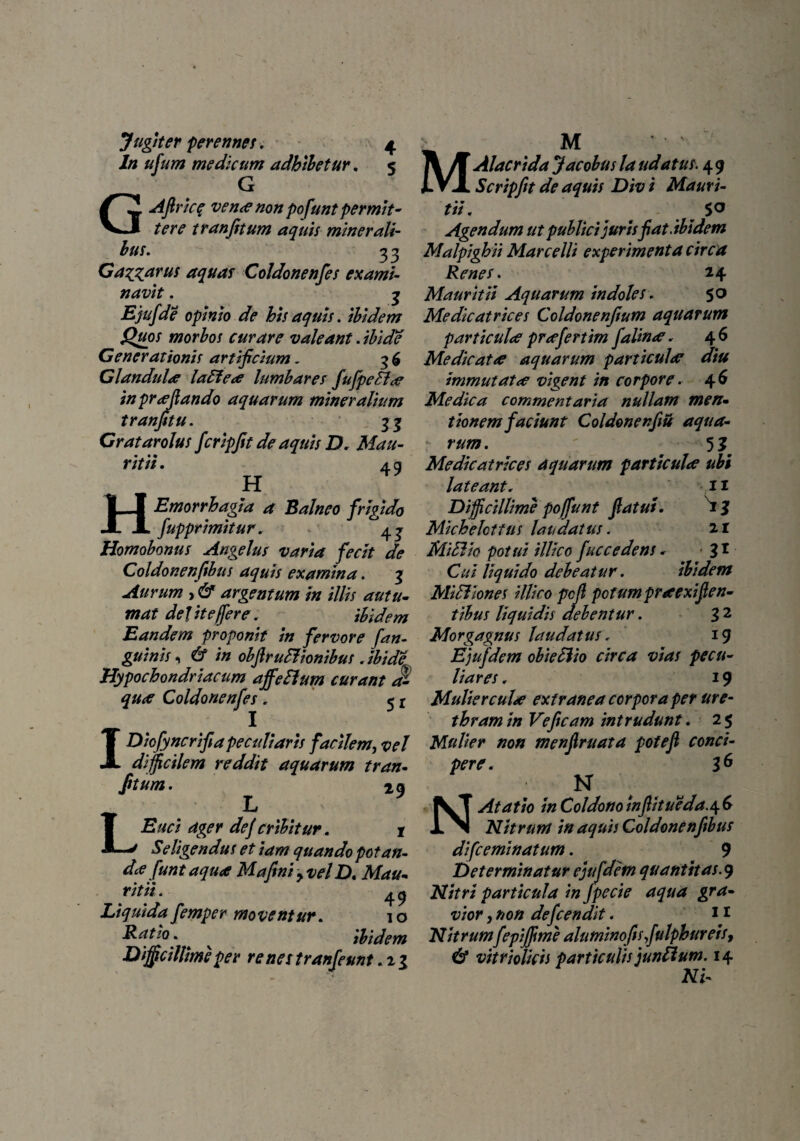 Jugiter perennes. 4
In uſum medicum adhibetur. 5
G
GAſtricę venæ non poſunt permit-
tere tranſitum aquis minerali-
bus. 33
Gazzarus aquas Coldonenſes exami-
navit. 3
Ejuſdē opinio de his aquis. ibidem
Quos morbos curare valeant. ibidē
Generationis artificium. 36
Glandulæ lacteæ lumbares ſuſpectæ
in præſtando aquarum mineralium
tranſitu. 33
Gratarolus ſcripſit de aquis D. Mau-
ritii. 49
H
HEmorrhagia a Balneo frigido
ſupprimitur. 43
Homobonus Angelus varia fecit de
Coldonenſibus aquis examina. 3
Aurum, & argentum in illis autu-
mat deliteſſere. ibidem
Eandem proponit in fervore ſan-
guinis, & in obſtructionibus. ibidē
Hypochondriacum affectum curant a-
quæ Coldonenſes. 51
I
IDioſyncriſia peculiaris facilem, vel
difficilem reddit aquarum tran-
ſitum. 29
L
LEuci ager deſcribitur. 1
Seligendus et iam quando potan-
dæ ſunt aquæ Maſini, vel D. Mau-
ritii. 49
Liquida ſemper moventur. 10
Ratio. ibidem
Difficillime per renes tranſeunt. 23
M
MAlacrida Jacobus laudatus. 49
Scripſit de aquis Divi Mauri-
tii. 50
Agendum ut publici juris fiat. ibidem
Malpighii Marcelli experimenta circa
Renes. 24
Mauritii Aquarum indoles. 50
Medicatrices Coldonenſium aquarum
particulæ præſertim ſalinæ. 46
Medicatæ aquarum particulæ diu
immutatæ vigent in corpore. 46
Medica commentaria nullam men-
tionem faciunt Coldonenſiū aqua-
rum. 53
Medicatrices aquarum particulæ ubi
lateant. 11
Difficillime poſſunt ſtatui. 13
Michelottus laudatus. 21
Mictio potui illico ſuccedens. 31
Cui liquido debeatur. ibidem
Mictiones illico poſt potum præexiſten-
tibus liquidis debentur. 32
Morgagnus laudatus. 19
Ejuſdem obiectio circa vias pecu-
liares. 19
Mulierculæ extranea corpora per ure-
thram in Veſicam intrudunt. 25
Mulier non menſtruata poteſt conci-
pere. 36
N
NAtatio in Coldono inſtituēda. 46
Nitrum in aquis Coldonenſibus
diſceminatum. 9
Determinatur ejuſdēm quantitas. 9
Nitri particula in ſpecie aqua gra-
vior, non deſcendit. 11
Nitrum ſepiſſime aluminoſis, ſulphureis,
& vitriolicis particulis junctum. 14
Ni-